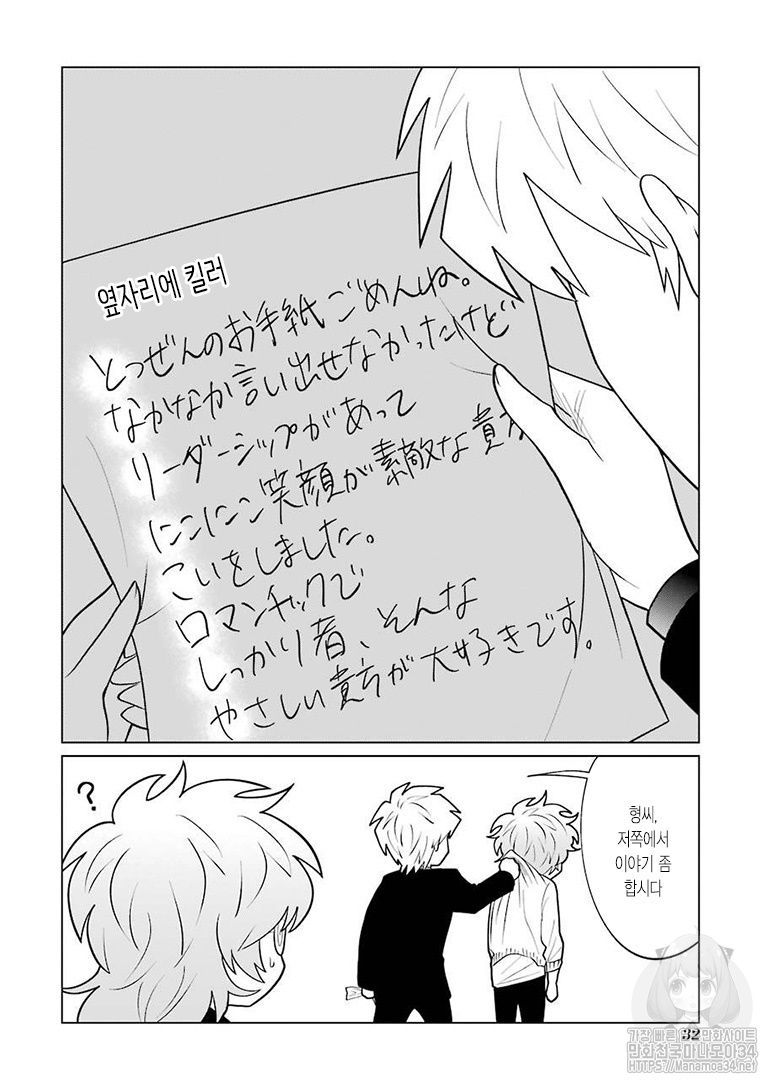 옆자리에 킬러
とつぜんのお手紙ごめんね。
なかなか言い出せなかったけど
リーダーシップがあって
にこにこ笑顔が素敵な貴方
こいをしました。
ロマンチックで
しっかり者、そんな
やさしい貴方が大好きです。
?
형씨,
저쪽에서
이야기 좀
합시다
32
가장 빠른 웹 만화사이트
만화천국마나모아34
HTTPS://Manamoa34.com